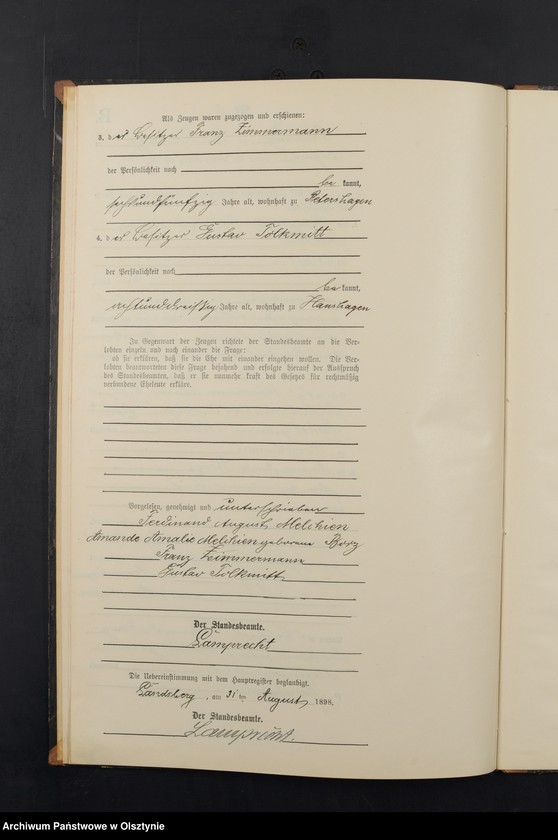 Als Zeugen waren zugezogen und erschienen:
3. der Besitzer Franz Zimmermann
der Persönlichkeit nach
bekannt,
sechsundfünfzig Jahre alt, wohnhaft zu Petershagen
4. der Besitzer Gustav Tolkmitt
der Persönlichkeit nach
bekannt,
achtunddreißig Jahre alt, wohnhaft zu Hanshagen
In Gegenwart der Zeugen richtete der Standesbeamte an die Ver-
lobten einzeln und nach einander die Frage:
ob sie erklären, daß sie die Ehe mit einander eingehen wollen. Die Ver-
lobten beantworteten diese Frage bejahend und erfolgte hierauf der Ausspruch
des Standesbeamten, daß er sie nunmehr kraft des Gesetzes für rechtmäßig
verbundene Eheleute erkläre.
Vorgelesen, genehmigt und unterschrieben
Ferdinand August Melchien
Amande Amalie Melchien geborene
Franz Zimmermann
Gustav Tolkmitt
Der Standesbeamte.
Lamprecht
Die Uebereinstimmung mit dem Hauptregister beglaubigt.
Landsberg, am 31 ten August 1890.
Der Standesbeamte.
Lamprecht.
Archiwum Państwowe w Olsztynie